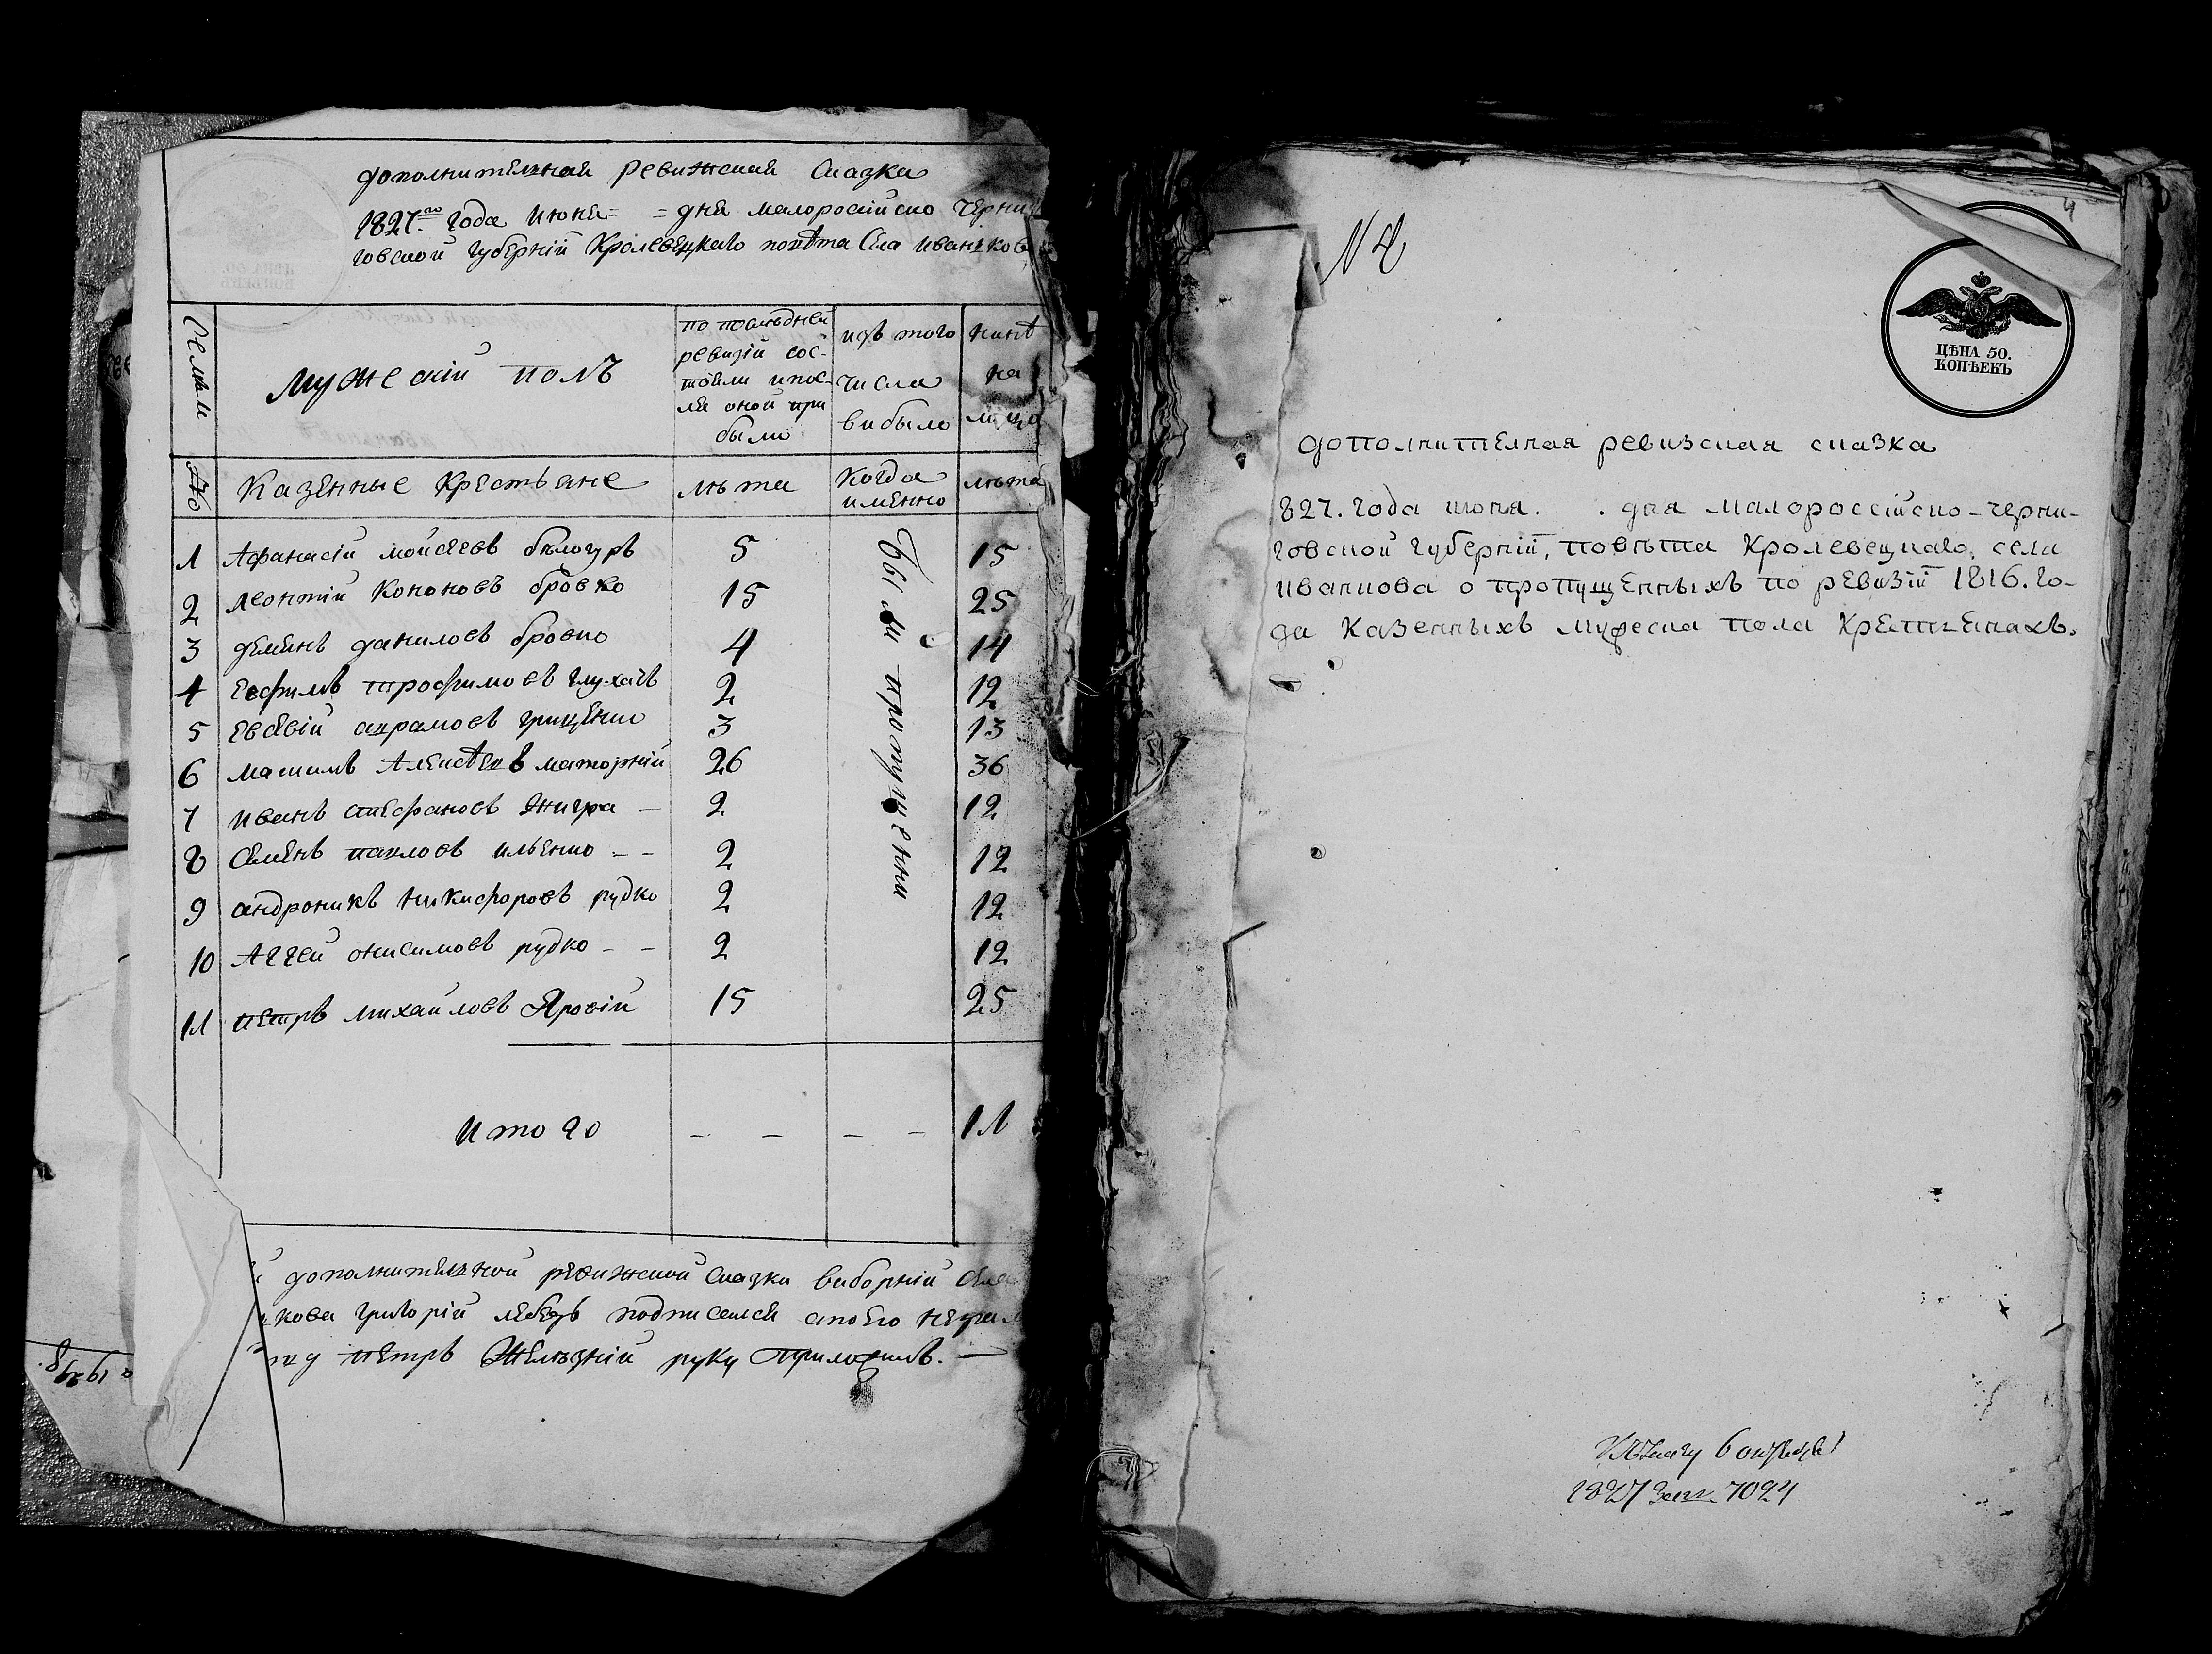 дополнителная ревижская сказка
1827.го года июня= =дня малоросийско черни
говской губернїй Кролевецкаго повѣта села иванков
Семьи
Мужескїй полъ
по последней
ревизїи сос-
тояли и пос-
ля оной при
было
изъ того
числа
вибыло
нинѣ
на
лицо
№
Казенные Крестьяне
лѣта
Когда
именно
лѣта
1 Афанасїй мойсеевъ бѣлогуръ 5 15
2 леонтїй Кононовъ бровко 15 25
3 демянъ даниловъ бровко 4 14
4 Евфимъ трофимовъ глухачъ 2 12
5 Евсевїй авраамовъ гриценко 3 13
6 максимъ Алексѣевъ маторнїй 26 36
7 иванъ стефановъ жигра — 2 12
8 Семенъ павловъ ильенко – – 2 12
9 андроникъ никифоровъ рудко 2 12
10 Аггей онисимовъ рудко – – 2 12
11 петръ михайловъ Яровїй 15 25
были пропущенни
итого – – – – 11
й дополнителной ревижской сказки виборнїй села
кова григорїй лебедь подписался а по его неграм
петръ Желѣзнїй руку приложилъ. —
№ 4
4
ЦѢНА 50.
КОПѢЕКЪ
дополнителная ревизская сказка
827. года июня. . дня малороссїйско-черни-
говской губернїй, повѣта Кролевецкаго, села
иванкова о пропущенныхъ по ревизїй 1816. го-
да Казенныхъ мужеска пола Крестьянахъ.
6 октября
1827 7024